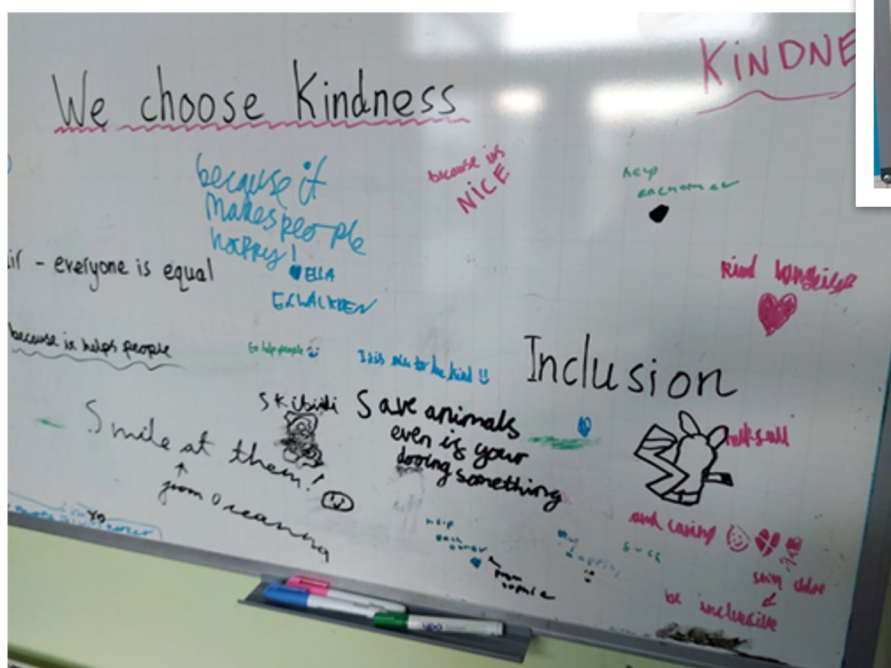 We choose Kindness
KiNDNE
because it
makes people
happy!
ELLA
because its
NICE
help
eachother
- everyone is equal
kind
because it helps people
Go help people
It is nice to be kind !!
Inclusion
Skibidi
Save animals
even is your
dooing something
Smile at them!
from Oreanna
and caring
help
each
other
from sophie
be inclusive